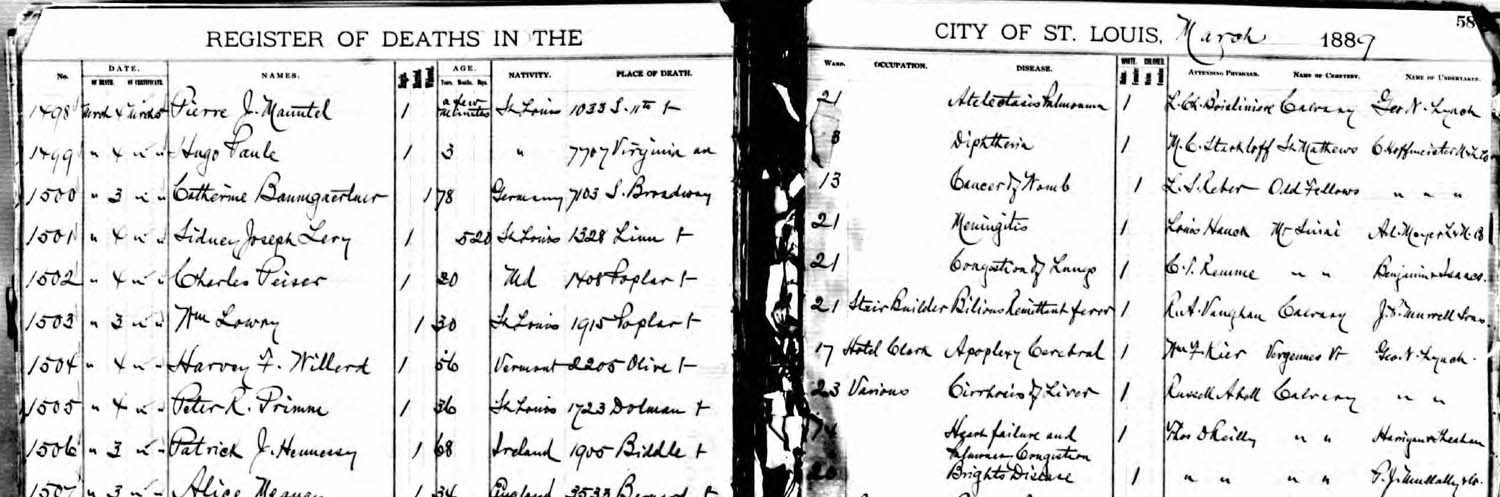 REGISTER OF DEATHS IN THE CITY OF ST. LOUIS, March 1889 58
No. DATE. OF DEATH. OF CERTIFICATE. NAMES. AGE. Years. Months. Days. NATIVITY. PLACE OF DEATH. WARD. OCCUPATION. DISEASE. WHITE. COLORED. ATTENDING PHYSICIAN. NAME OF CEMETERY. NAME OF UNDERTAKER.
1498 March 4 March 5 Pierre J. 1 a few minutes St Louis 1033 S. 11th t 21 Atelectasis Pulmonum 1 Calvary Geo. N. Lynch
1499 " 4 " " Hugo Paule 1 3 " 7707 Virginia av 8 Diphtheria 1 M. C. Starkloff St Mathews C Hoffmeister
1500 " 3 " " Catherine Baumgaertner 1 78 Germany 7103 S. Broadway 13 Cancer of Womb 1 L. S. Reber Odd Fellows " " "
1501 " 4 " " Sidney Joseph Levy 1 5 20 St Louis 1328 Linn t 21 Meningitis 1 Louis Hauck Mt Sinai
1502 " 4 " " Charles Peiser 1 20 Md 1408 Poplar t 21 Congestion of Lungs 1 " " Benjamin Isaacs
1503 " 3 " " Wm Lowry 1 30 St Louis 1915 Poplar t 21 Stair Builder Bilious Remittant fever 1 R. A. Vaughan Calvary
1504 " 4 " " Harvey F. Willerd 1 56 Vermont 2205 Olive t 17 Hotel Clark Apoplexy Cerebral 1 Wm F. Kier Vergennes Vt Geo. N. Lynch
1505 " 4 " " Peter R. Primm 1 36 St Louis 1723 Dolman t 23 Various Cirrhosis of Liver 1 Calvary " "
1506 " 3 " " Patrick J. Hennessy 1 68 Ireland 1905 Biddle t Heart failure and Pulmonary Congestion 1 Thos O'Reilly " "
1507 " 3 " " Alice 1 34 England 3533 t Brights Disease 1 " " "